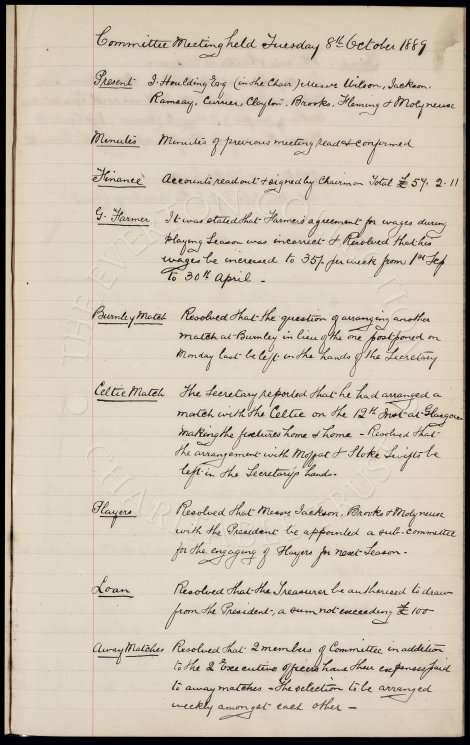 Committee Meeting held Tuesday 8th October 1889
Present J. Houlding Esq (in the Chair) Messrs Wilson, Jackson,
Ramsay, Currier, Clayton, Brooks, Fleming & Molyneux
Minutes Minutes of previous meeting read & confirmed
Finance Accounts read out & signed by Chairman Total £57. 2. 11
G. Farmer It was stated that Farmer's agreement for wages during
playing Season was incorrect & Resolved that his
wages be increased to 35/- per week from 1st Sep
to 30th April -
Burnley Match Resolved that the question of arranging another
match at Burnley in lieu of the one postponed on
Monday last be left in the hands of the Secretary
Celtic Match The Secretary reported that he had arranged a
match with the Celtic on the 12th Inst at Glasgow
making the fixtures home & home - Resolved that
the arrangement with Moffat & Stoke Swifts be
left in the Secretary's hands.
Players Resolved that Messrs Jackson, Brooks & Molyneux
with the President be appointed a sub-committee
for the engaging of Players for next Season -
Loan Resolved that the Treasurer be authorised to draw
from the President, a sum not exceeding £100
Away Matches Resolved that 2 members of Committee in addition
to the 2 Executive officers have their expenses paid
to away matches - The selection to be arranged
weekly amongst each other -
THE EVERTON COLLECTION
CHARITABLE TRUST